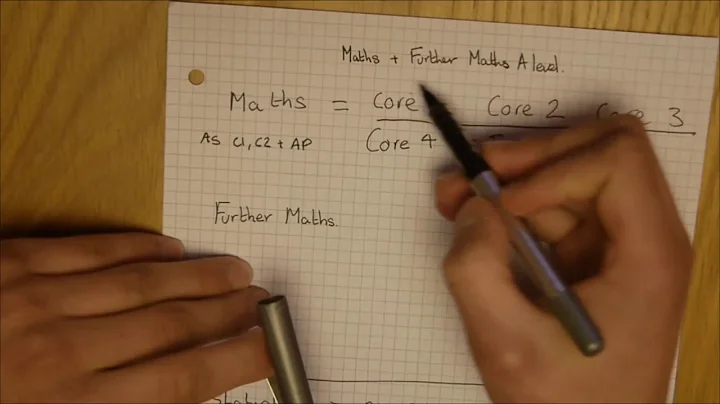 Maths + Further Maths A level.
Maths = Core Core 2 Core 3
AS C1, C2 + AP Core 4
Further Maths.